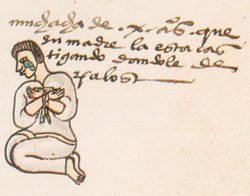 muchacha de .x. años que
su madre la esta cas
tigando dandole de
palos